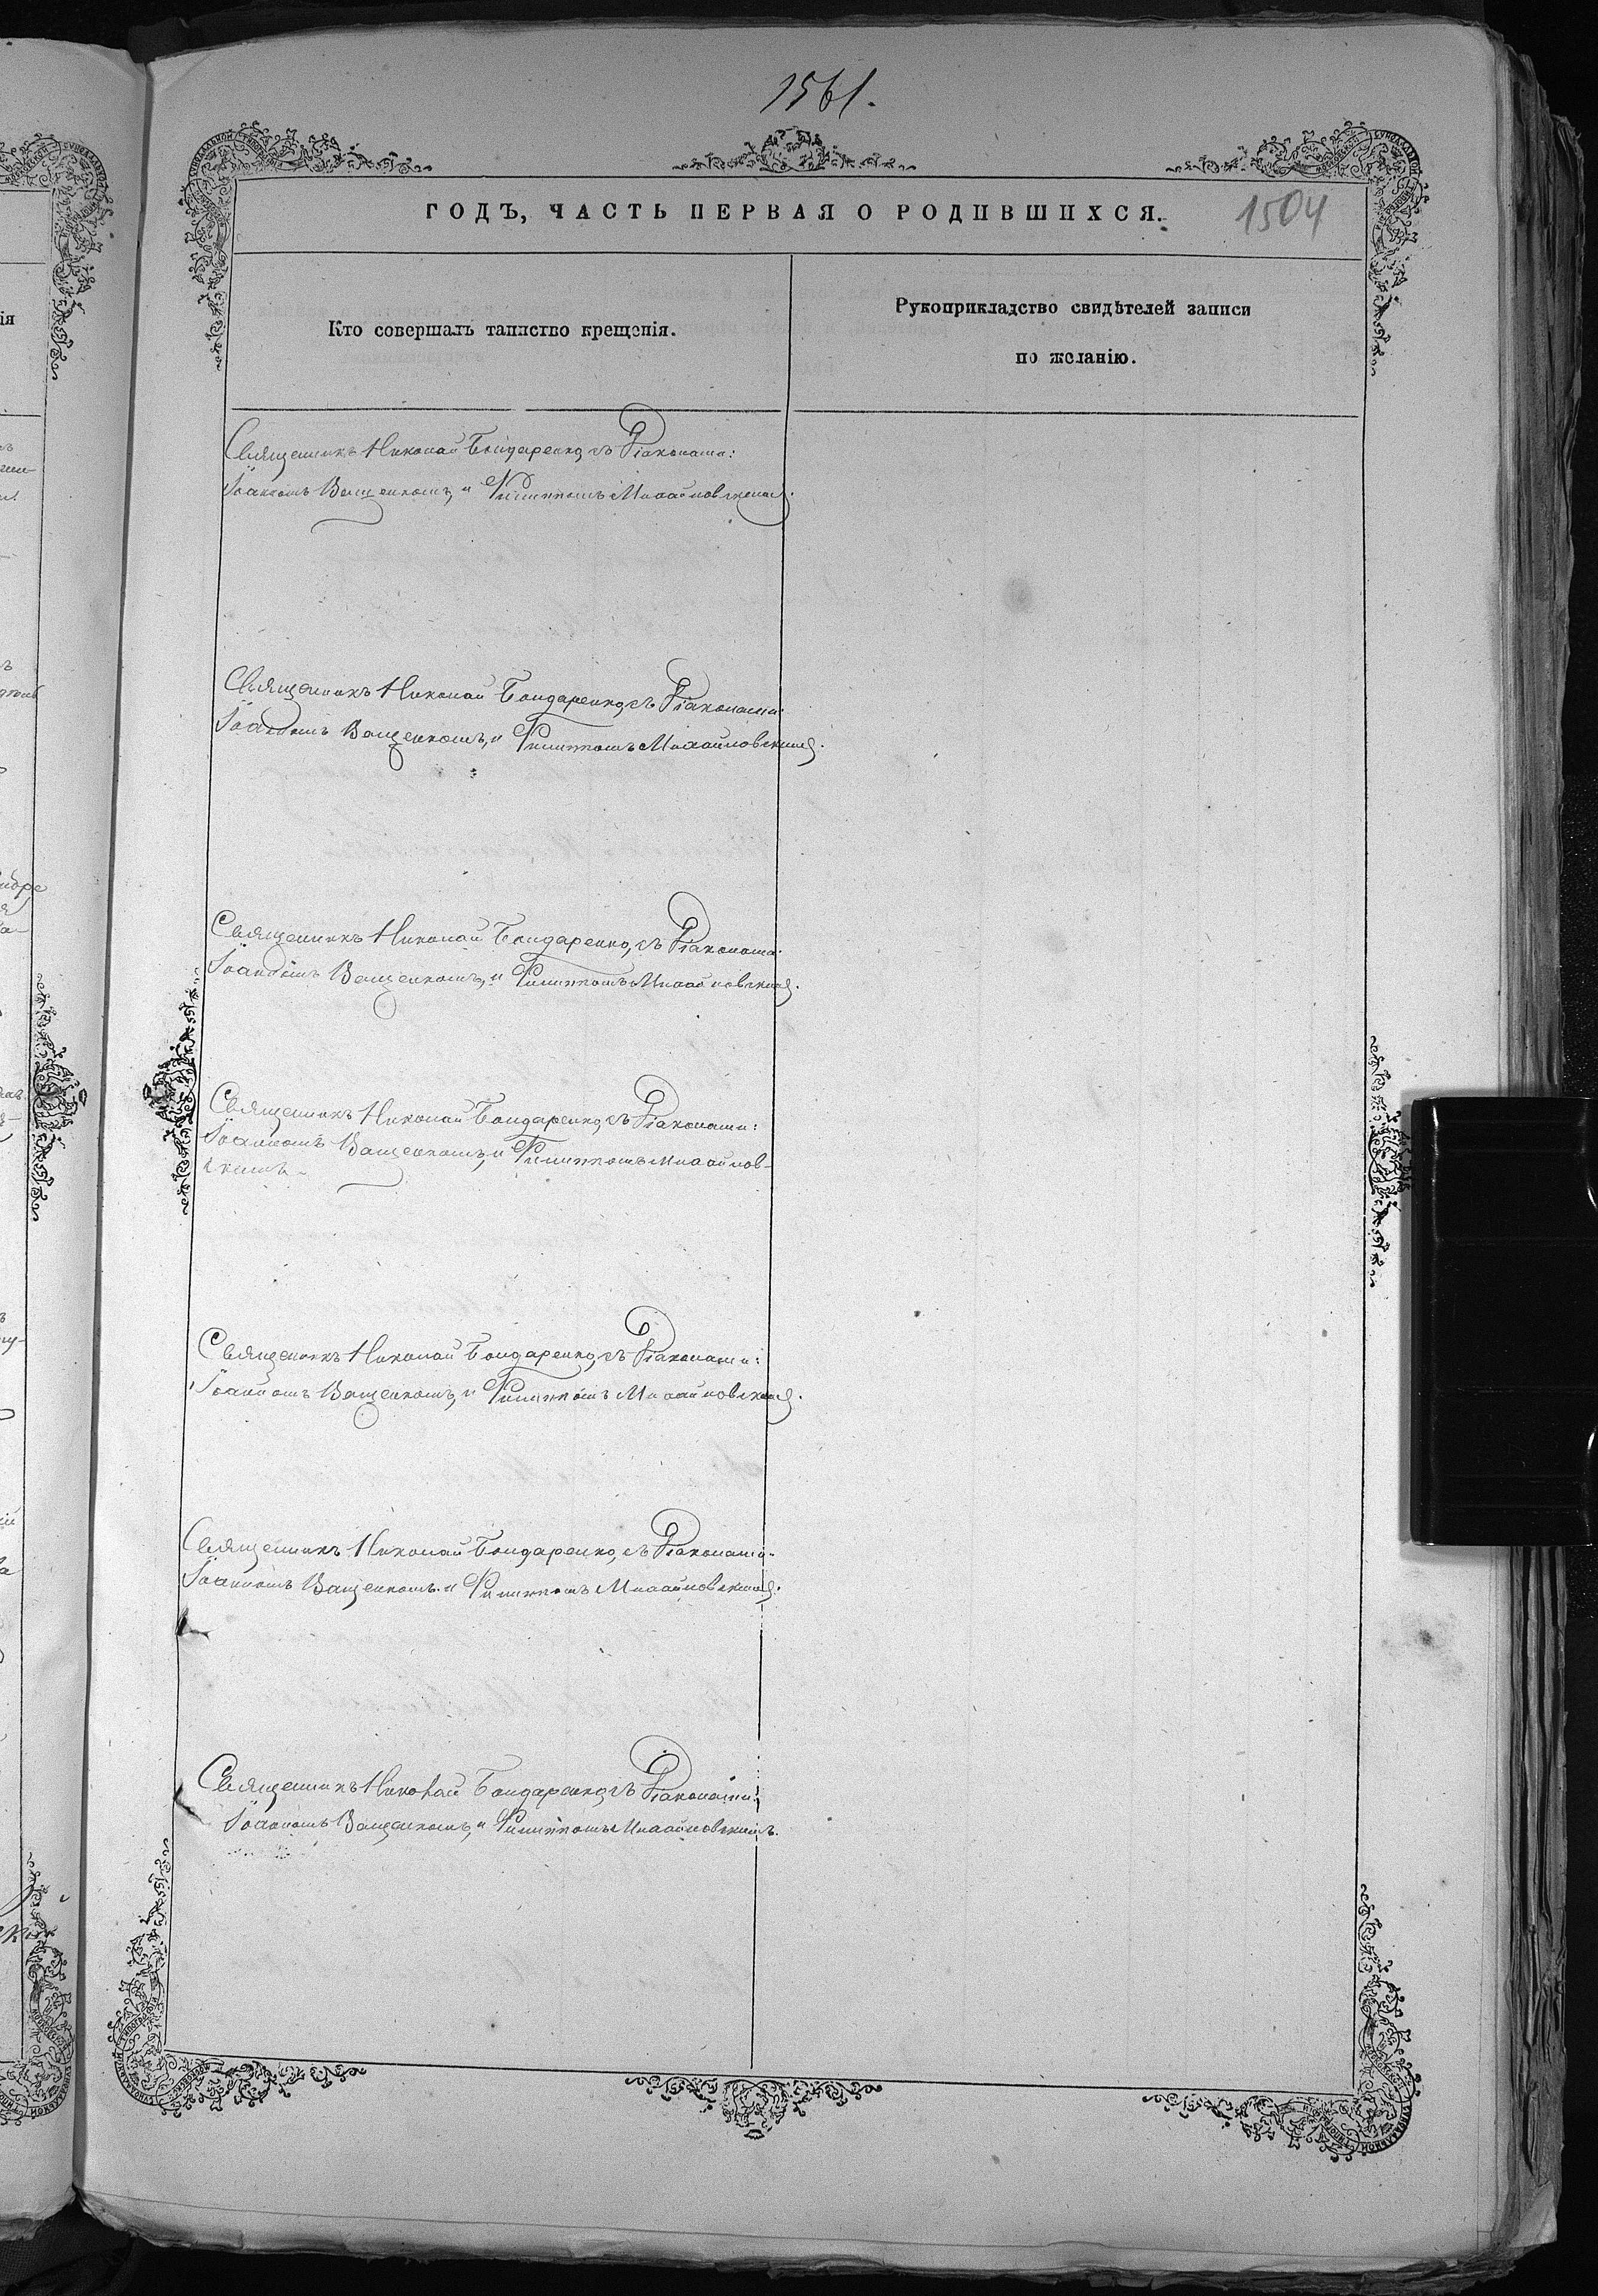 1561.
ГОДЪ, ЧАСТЬ ПЕРВАЯ О РОДИВШИХСЯ.
1504
Кто совершалъ таинство крещенія.
Рукоприкладство свидѣтелей записи
по желанію.
Священникъ Николай Бондаренко, съ Діаконами:
Іоанномъ Ващенкомъ, и Филиппомъ Михайловскимъ.
Священникъ Николай Бондаренко, съ Діаконами:
Іоанномъ Ващенкомъ, и Филиппомъ Михайловскимъ.
Священникъ Николай Бондаренко, съ Діаконами:
Іоанномъ Ващенкомъ, и Филиппомъ Михайловскимъ.
Священникъ Николай Бондаренко, съ Діаконами:
Іоанномъ Ващенкомъ, и Филиппомъ Михайлов-
скимъ.
Священникъ Николай Бондаренко, съ Діаконами:
Іоанномъ Ващенкомъ, и Филиппомъ Михайловскимъ.
Священникъ Николай Бондаренко, съ Діаконами:
Іоанномъ Ващенкомъ и Филиппомъ Михайловскимъ.
Священникъ Николай Бондаренко, съ Діаконами:
Іоанномъ Ващенкомъ, и Филиппомъ Михайловскимъ.